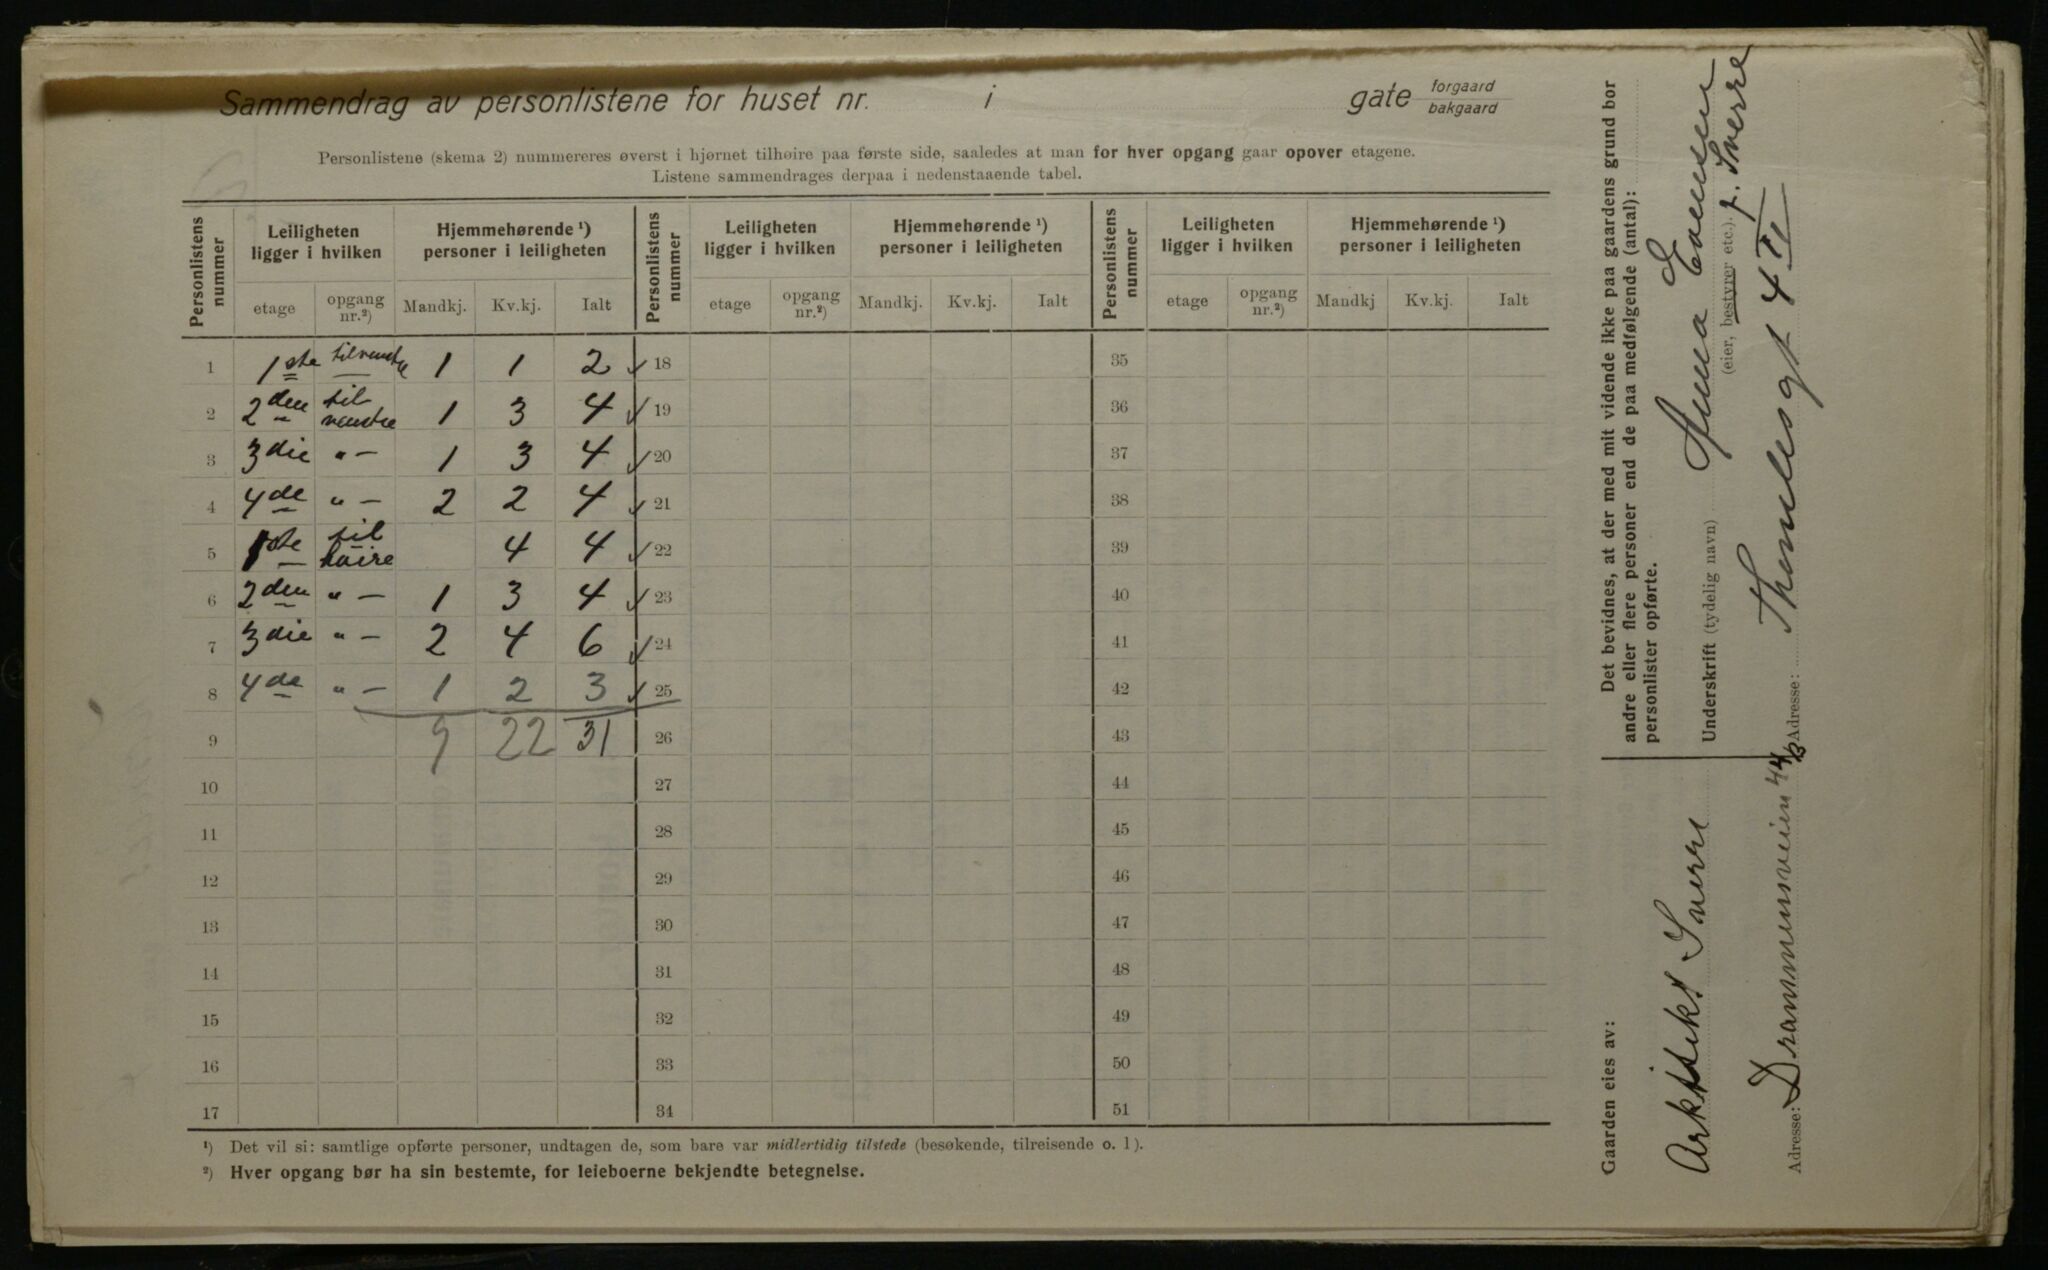 Sammendrag av personlistene for huset nr. i gate forgaard bakgaard
Personlistene (skema 2) nummereres øverst i hjørnet tilhøire paa første side, saaledes at man for hver opgang gaar opover etagene.
Listene sammendrages derpaa i nedenstaaende tabel.
Personlistens nummer | Leiligheten ligger i hvilken | Hjemmehørende ¹) personer i leiligheten | Personlistens nummer | Leiligheten ligger i hvilken | Hjemmehørende ¹) personer i leiligheten | Personlistens nummer | Leiligheten ligger i hvilken | Hjemmehørende ¹) personer i leiligheten
etage | opgang nr.²) | Mandkj. | Kv.kj. | Ialt | etage | opgang nr.²) | Mandkj. | Kv.kj. | Ialt | etage | opgang nr.²) | Mandkj | Kv.kj. | Ialt
1 | 1ste | tilvenstre | 1 | 1 | 2 ✓ | 18 | 35
2 | 2den | til venstre | 1 | 3 | 4 ✓ | 19 | 36
3 | 3die | " — | 1 | 3 | 4 ✓ | 20 | 37
4 | 4de | " — | 2 | 2 | 4 ✓ | 21 | 38
5 | 1ste | til høire | | 4 | 4 ✓ | 22 | 39
6 | 2den | " — | 1 | 3 | 4 ✓ | 23 | 40
7 | 3die | " — | 2 | 4 | 6 ✓ | 24 | 41
8 | 4de | " — | 1 | 2 | 3 ✓ | 25 | 42
9 | | | 9 | 22 | 31 | 26 | 43
10 | 27 | 44
11 | 28 | 45
12 | 29 | 46
13 | 30 | 47
14 | 31 | 48
15 | 32 | 49
16 | 33 | 50
17 | 34 | 51
¹) Det vil si: samtlige opførte personer, undtagen de, som bare var midlertidig tilstede (besøkende, tilreisende o. l).
²) Hver opgang bør ha sin bestemte, for leieboerne bekjendte betegnelse.
Det bevidnes, at der med mit vidende ikke paa gaardens grund bor
andre eller flere personer end de paa medfølgende (antal):
personlister opførte.
Underskrift (tydelig navn) Anna Evensen
(eier, bestyrer etc.). f. Sverre
Adresse: Thomlesgt 4 III
Gaarden eies av:
Arkitekt Sverre
Adresse: Drammensveien